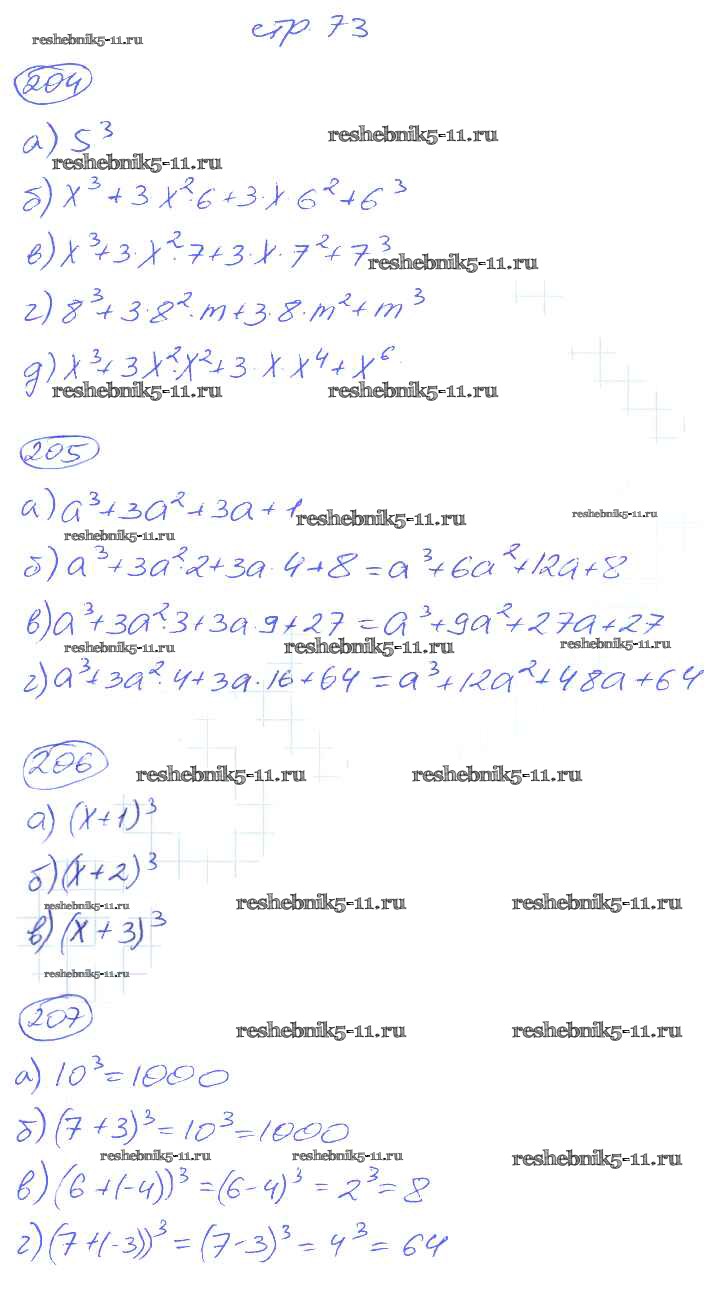 стр. 73
reshebnik5-11.ru
204
а) 5³
reshebnik5-11.ru
reshebnik5-11.ru
б) x³ + 3 x²·6 + 3·x·6² + 6³
в) x³ + 3·x²·7 + 3·x·7² + 7³
reshebnik5-11.ru
г) 8³ + 3·8²·m + 3·8·m² + m³
д) x³ + 3x²·x² + 3·x·x⁴ + x⁶
reshebnik5-11.ru
reshebnik5-11.ru
205
а) a³ + 3a² + 3a + 1
reshebnik5-11.ru
reshebnik5-11.ru
reshebnik5-11.ru
б) a³ + 3a²·2 + 3a·4 + 8 = a³ + 6a² + 12a + 8
в) a³ + 3a²·3 + 3a·9 + 27 = a³ + 9a² + 27a + 27
reshebnik5-11.ru
reshebnik5-11.ru
reshebnik5-11.ru
г) a³ + 3a²·4 + 3a·16 + 64 = a³ + 12a² + 48a + 64
206
reshebnik5-11.ru
reshebnik5-11.ru
а) (x+1)³
б) (x+2)³
reshebnik5-11.ru
reshebnik5-11.ru
reshebnik5-11.ru
в) (x+3)³
reshebnik5-11.ru
207
reshebnik5-11.ru
reshebnik5-11.ru
а) 10³ = 1000
б) (7+3)³ = 10³ = 1000
reshebnik5-11.ru
reshebnik5-11.ru
reshebnik5-11.ru
в) (6+(-4))³ = (6-4)³ = 2³ = 8
г) (7+(-3))³ = (7-3)³ = 4³ = 64